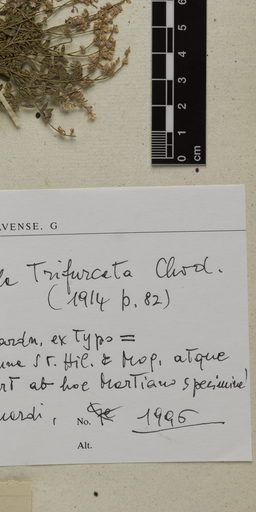 6
5
4
3
2
1
0
cm
AVENSE, G
Trifurcata Chod.
(1914 p. 82)
ex typo =
St. Hil. & Moq. atque
ab hoc Martiano specimine!
No. 1996
Alt.